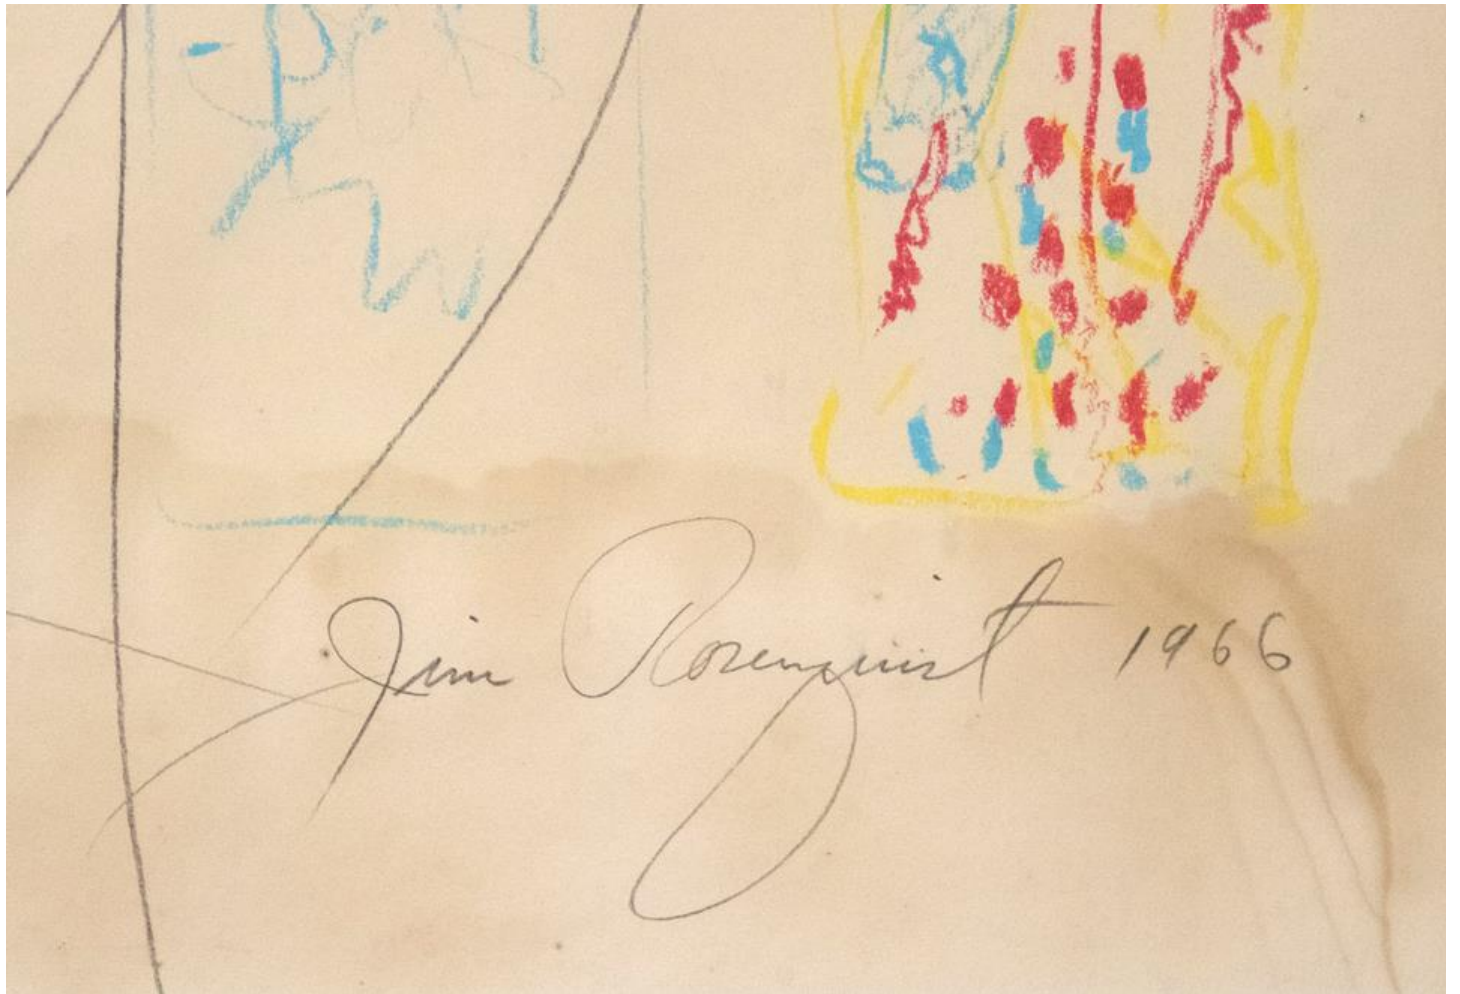 Jim Rosenquist 1966